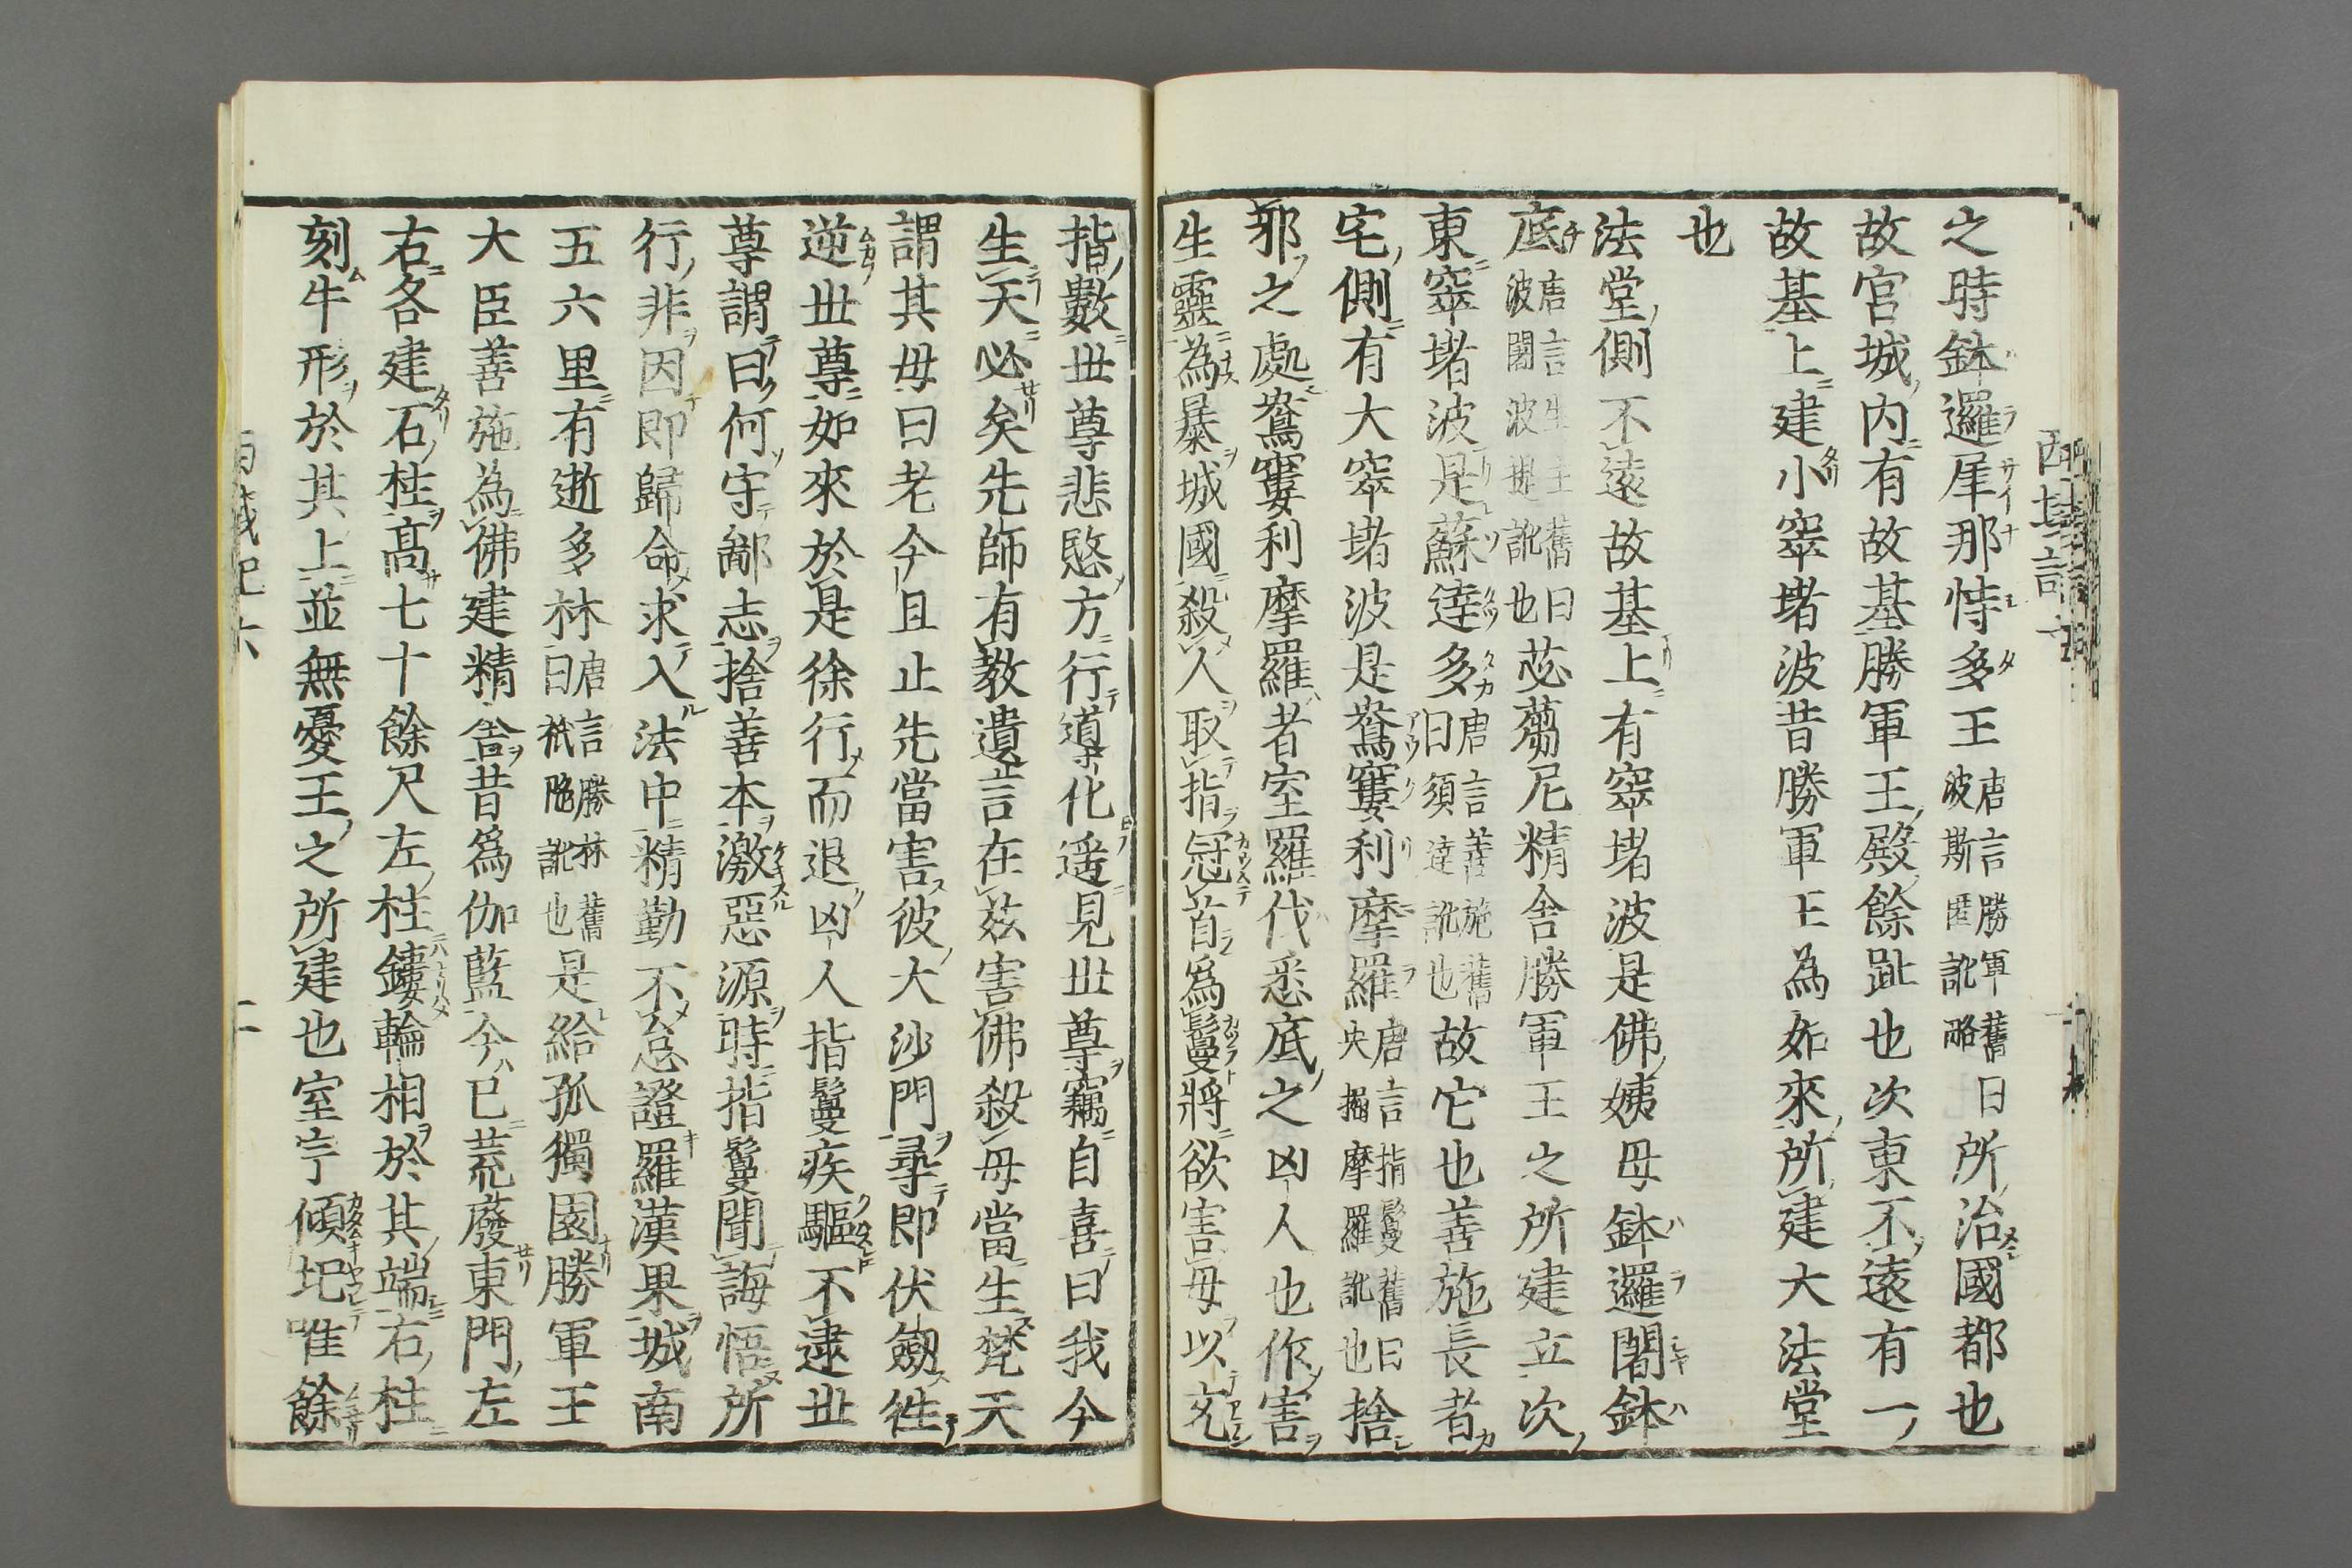 之時鉢邏犀那恃多王唐言勝軍舊曰波斯匿訛略所治國都也
故宮城內有故基勝軍王殿餘趾也次東不遠有一
故基上建小窣堵波昔勝軍王為如來所建大法堂
也
法堂側不遠故基上有窣堵波是佛姨母鉢邏闍鉢
底唐言生主舊曰波闍波提訛也苾蒭尼精舍勝軍王之所建立次
東窣堵波是蘇達多唐言善施舊曰須達訛也故宅也善施長者
宅側有大窣堵波是鴦窶利摩羅唐言指鬘舊曰央掘摩羅訛也捨
邪之處鴦窶利摩羅者室羅伐悉底之凶人也作害
生靈為暴城國殺人取指冠首為鬘將欲害母以充
指數世尊悲愍方行導化遙見世尊竊自喜曰我今
生天必矣先師有教遺言在茲害佛殺母當生梵天
謂其母曰老今且止先當害彼大沙門尋即伏劒往
逆世尊如來於是徐行而退凶人指鬘疾驅不逮世
尊謂曰何守鄙志捨善本激惡源時指鬘聞誨悟所
行非因即歸命求入法中精勤不怠證羅漢果城南
五六里有逝多林唐言勝林舊曰祇陁訛也是給孤獨園勝軍王
大臣善施為佛建精舍昔為伽藍今已荒廢東門左
右各建石柱高七十餘尺左柱鏤輪相於其端右柱
刻牛形於其上並無憂王之所建也室宇傾圮唯餘
西域記六